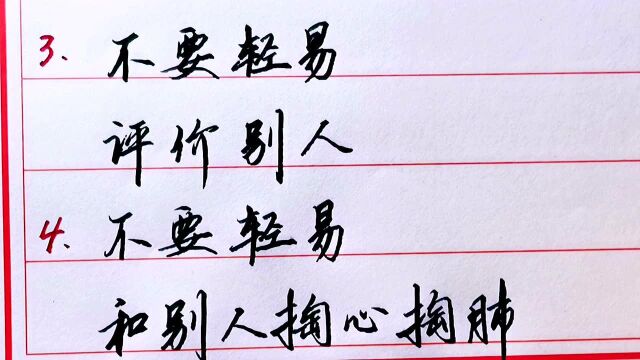 3. 不要轻易
评价别人
4. 不要轻易
和别人掏心掏肺